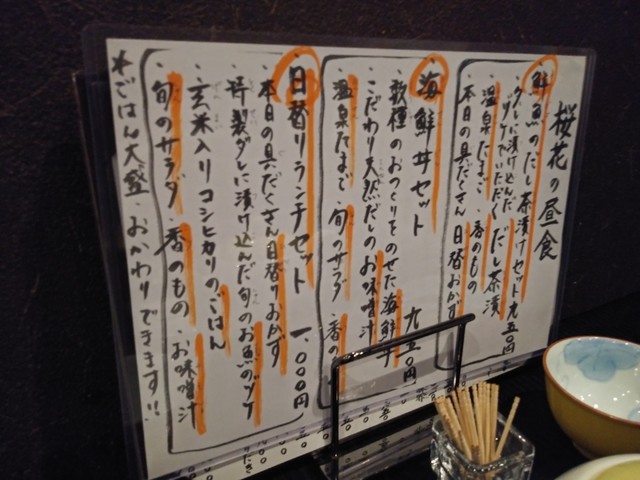 桜花の昼食
鮮魚のだし茶漬けセット九五〇円
・タレに漬け込んだ
ヅケでいただくだし茶漬
・温泉たまご ・香のもの
・本日の具だくさん日替おかず
海鮮丼セット 九五〇円
・数種のおつくりをのせた海鮮丼
・こだわり天然だしのお味噌汁
・温泉たまご 旬のサラダ 香の
日替りランチセット 一、〇〇〇円
・本日の具だくさん日替りおかず
・特製ダレに漬け込んだ旬のお魚のヅケ
・玄米入りコシヒカリのごはん
・旬のサラダ ・香のもの ・お味噌汁
*ごはん大盛 おかわりできます!!